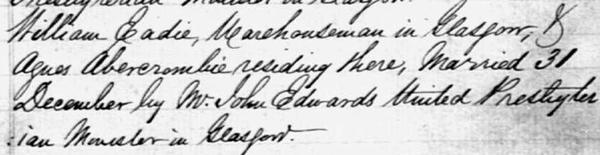 William Eadie, Warehouseman in Glasgow, &
Agnes Abercrombie residing there, Married 31
December by Mr. John Edwards United Presbyter
:ian Minister in Glasgow.